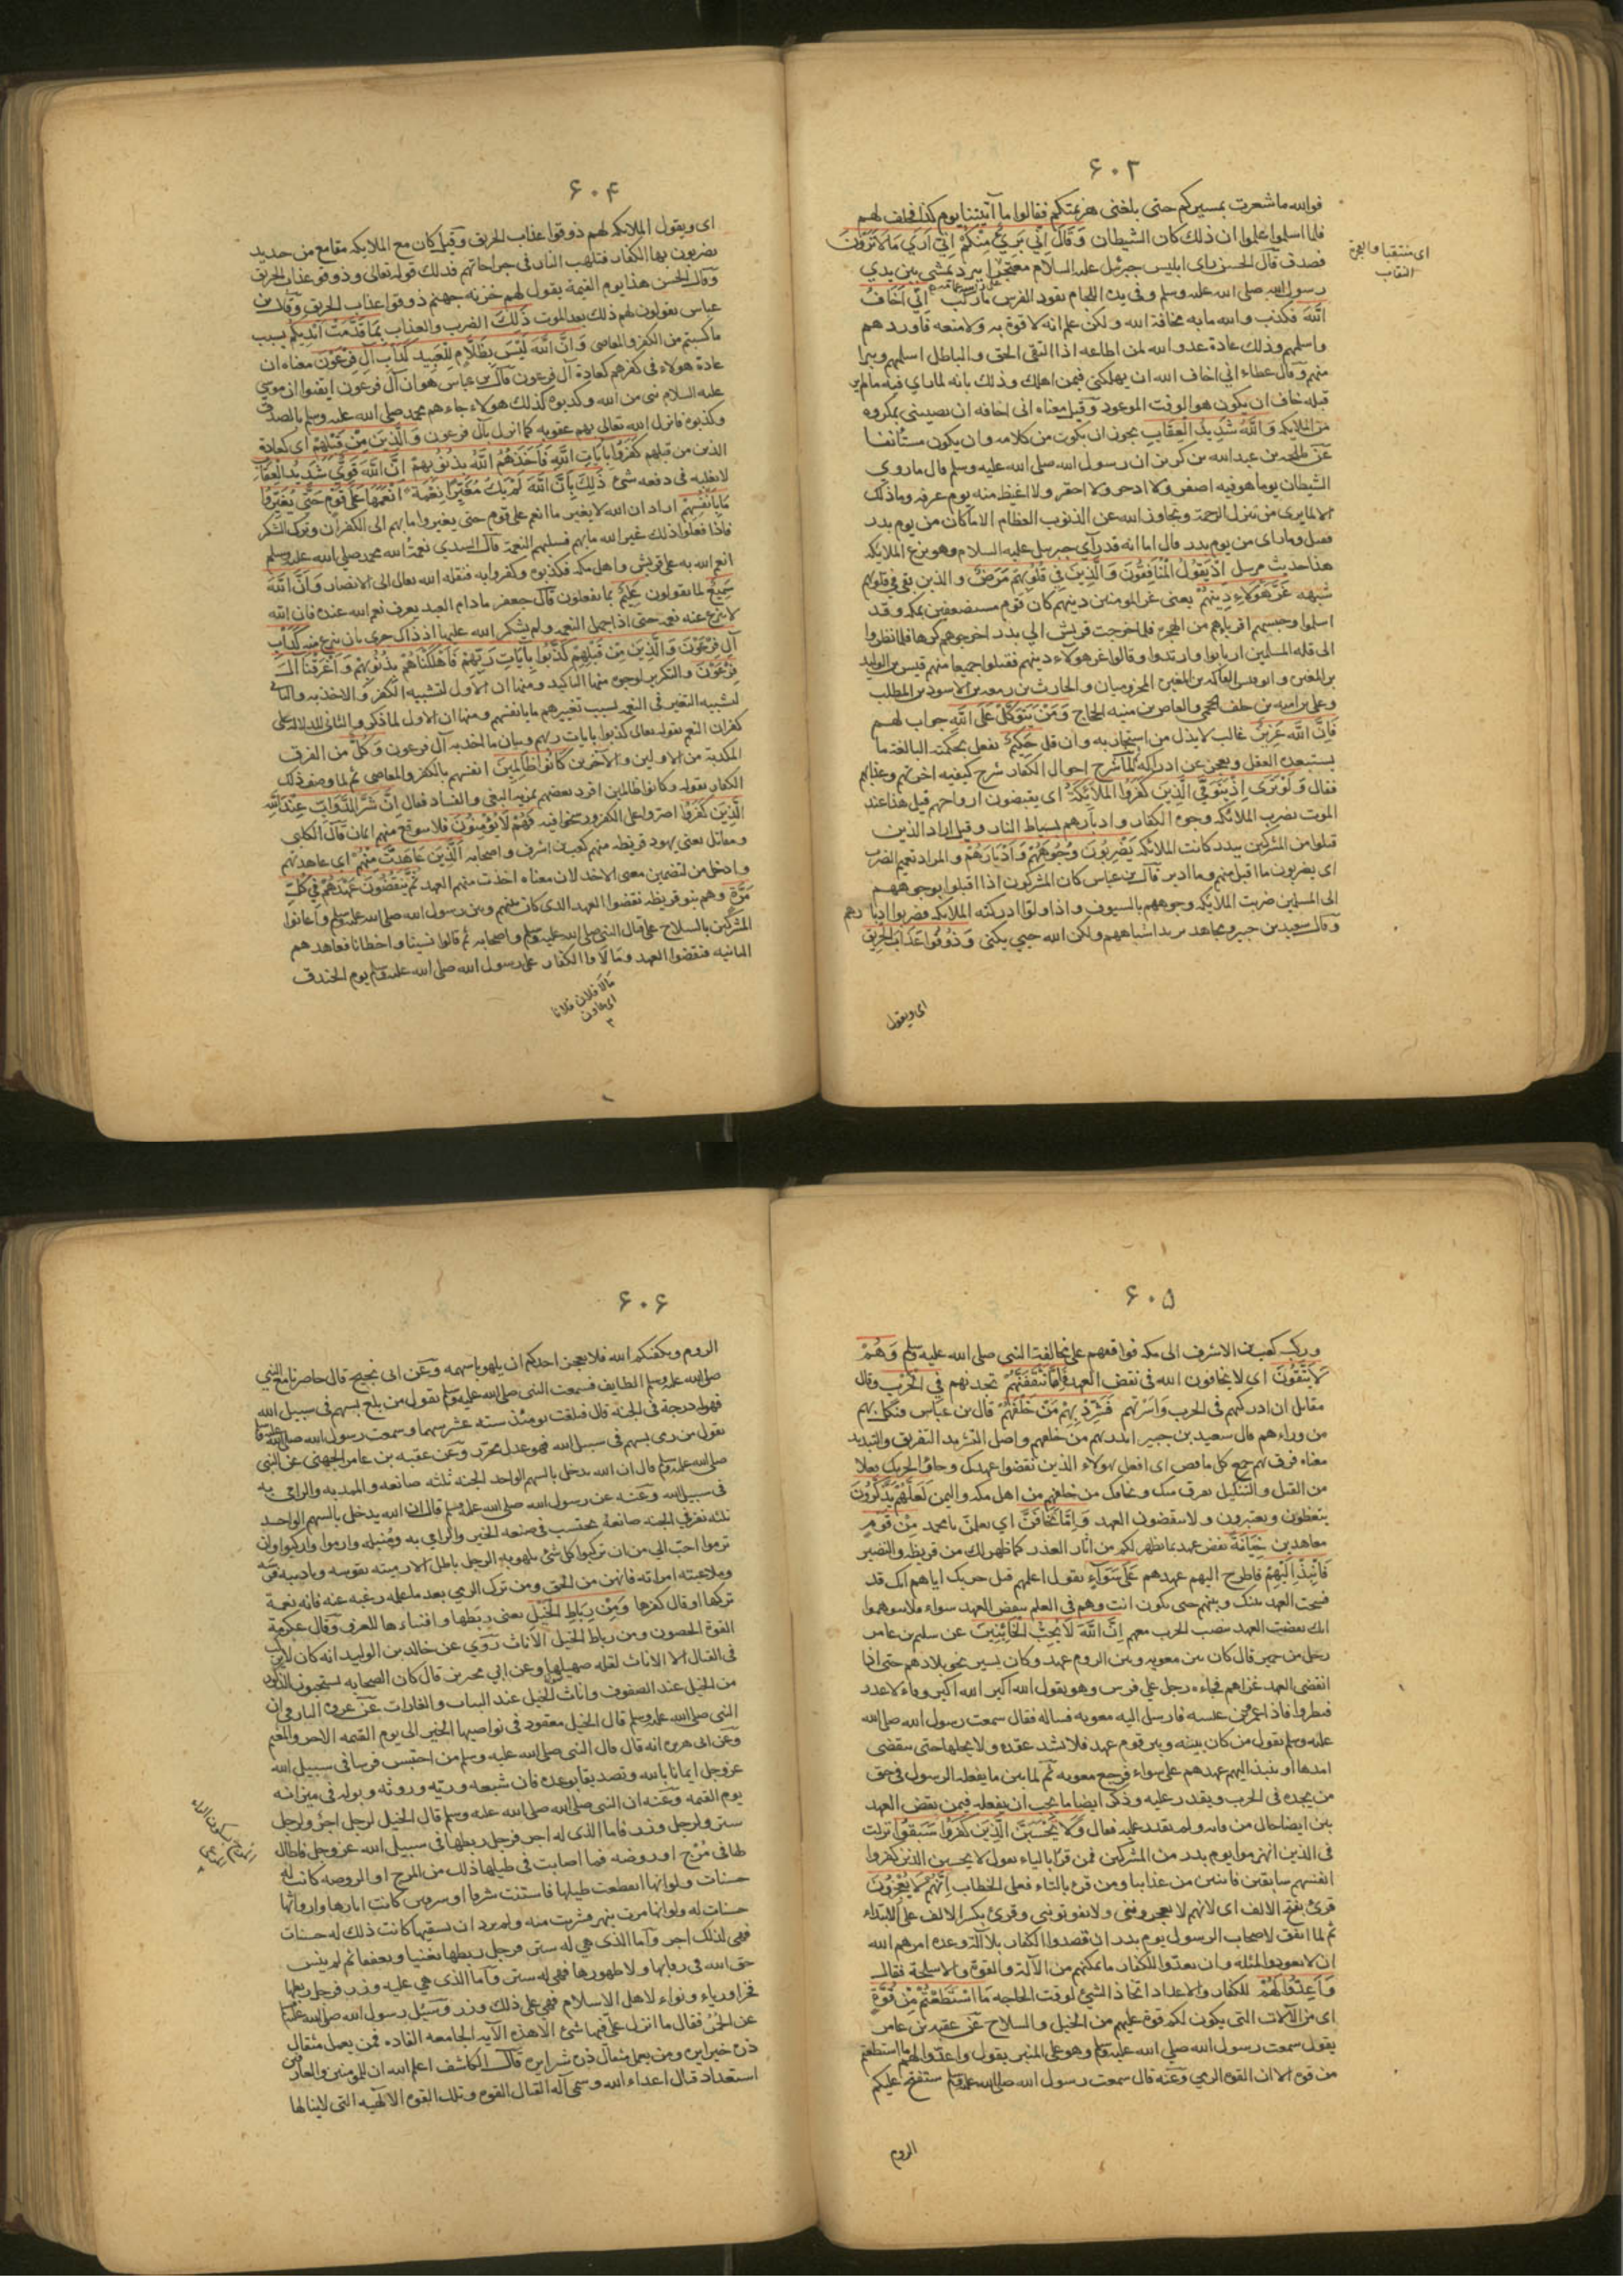 ۶۰۳
فوالله ما شعرت بمسيركم حتى بلغنى هزيمتكم فقالوا ما آتيتنا يوم كذا فحلف لهم
فلما اسلموا علموا ان ذلك كان الشيطان وَقَالَ اِنِّي بَرِيءٌ مِنْكُمْ اِنِّي اَرَي مَا لَا تَرَوْنَ
فصدق قال الحسن راى ابليس جبرئيل عليه السلام معتجرا ببرد يمشى بين يدي
رسول الله صلى الله عليه وسلم وفى يده اللجام يقود الفرس ما ركب اِنِّي اَخَافُ
اللَّهَ فكذب والله ما به مخافة الله ولكن علم انه لا قوة به ولا منعه فاوردهم
واسلمهم وذلك عادة عدو الله لمن اطاعه اذا التقى الحق والباطل اسلمهم وتبرا
منهم وقال عطاء انى اخاف الله ان يهلكنى فيمن اهلك وذلك بانه لما راي فيه ما لم ير
قبله خاف ان يكون هو الوقت الموعود وقيل معناه انى اخافه ان يصيبنى بمكروه
من الملايكه وَاللَّهُ شَدِيدُ الْعِقَابِ يجوز ان يكون من كلامه وان يكون مستأنفا
عن طلحه بن عبدالله بن كريز ان رسول الله صلى الله عليه وسلم قال ما روي
الشيطان يوما هو فيه اصغر ولا ادحر ولا احقر ولا اغيظ منه يوم عرفه وما ذلك
الا لما يرى من تنزل الرحمة وتجاوز الله عن الذنوب العظام الا ما كان من يوم بدر
فقيل وما راى من يوم بدر قال اما انه قد رآي جبرئيل عليه السلام وهو يزع الملايكه
هذا حديث مرسل اِذْ يَقُولُ الْمُنَافِقُونَ وَالَّذِينَ فِي قُلُوبِهِمْ مَرَضٌ والذين بقى فى قلوبهم
شبهه غَرَّ هَؤُلَاءِ دِينُهُمْ يعنى غر المومنين دينهم كان قوم مستضعفين بمكه وقد
اسلموا وحبسهم اقرباؤهم من الهجره فلما خرجت قريش الى بدر اخرجوهم كرها فلما نظروا
الى قله المسلمين ارتابوا وارتدوا وقالوا غر هولاء دينهم فقتلوا جميعا منهم قيس بن الوليد
بن المغيره وابو قيس الفاكه بن المغيره المخزوميان والحارث بن ربيعه بن الاسود بن المطلب
وعلى بن اميه بن خلف الجمحي والعاص بن منبه الحجاج وَمَنْ يَتَوَكَّلْ عَلَى اللَّهِ جواب لهم
فَاِنَّ اللَّهَ عَزِيزٌ غالب لا يذل من استجار به وان قل حَكِيمٌ يفعل بحكمته البالغة ما
يستبعده العقل ويعجز عن ادراكه ثم لما شرح احوال الكفار شرح كيفيه اخرتهم وعذابهم
فقال وَلَوْ تَرَى اِذْ يَتَوَفَّى الَّذِينَ كَفَرُوا الْمَلَائِكَةُ اى يقبضون ارواحهم قيل هذا عند
الموت تضرب الملائكه وجوه الكفار وادبارهم بسياط النار وقيل اراد الذين
قتلوا من المشركين ببدر كانت الملائكه يَضْرِبُونَ وُجُوهَهُمْ وَاَدْبَارَهُمْ والمراد تعميم الضرب
اى يضربون ما اقبل منهم وما ادبر قال بن عباس كان المشركون اذا اقبلوا بوجوههم
الى المسلمين ضربت الملايكه وجوههم بالسيوف واذا ولوا ادركتهم الملايكه فضربوا ادبارهم
وقال سعيد بن جبير ومجاهد يريد استاههم ولكن الله حيي يكنى وَذُوقُوا عَذَابَ الْحَرِيقِ
اى ويقول
اى متنقبا والعجر
النقاب
۶۰۴
اى ويقول الملائكه لهم ذوقوا عذاب الحريق وقيل كان مع الملايكه مقامع من حديد
يضربون بها الكفار فتلهب النار فى جراحاتهم فذلك قوله تعالى وذوقوا عذاب الحريق
وقال الحسن هذا يوم القيمة يقول لهم خزنه جهنم ذوقوا عذاب الحريق وقال بن
عباس يقولون لهم ذلك بعد الموت ذَلِكَ الضرب والعذاب بِمَا قَدَّمَتْ اَيْدِيكُمْ بسبب
ما كسبتم من الكفر والمعاصى وَاَنَّ اللَّهَ لَيْسَ بِظَلَّامٍ لِلْعَبِيدِ كَدَأْبِ آلِ فِرْعَوْنَ معناه ان
عادة هولاء فى كفرهم كعادة آل فرعون قال بن عباس هو ان آل فرعون ايقنوا ان موسى
عليه السلام نبى من الله وكذبوه كذلك هولاء جاءهم محمد صلى الله عليه وسلم بالصدق
وكذبوه فانزل الله تعالى بهم عقوبه كما انزل بآل فرعون وَالَّذِينَ مِنْ قَبْلِهِمْ اى كعادة
الذين من قبلهم كَفَرُوا بِآيَاتِ اللَّهِ فَاَخَذَهُمُ اللَّهُ بِذُنُوبِهِمْ اِنَّ اللَّهَ قَوِيٌّ شَدِيدُ الْعِقَابِ
لا يغلبه فى دفعه شىء ذَلِكَ بِاَنَّ اللَّهَ لَمْ يَكُ مُغَيِّرًا نِعْمَةً اَنْعَمَهَا عَلَى قَوْمٍ حَتَّى يُغَيِّرُوا
مَا بِاَنْفُسِهِمْ اراد ان الله لا يغير ما انعم على قوم حتى يغيروا ما بهم الى الكفران وترك الشكر
فاذا فعلوا ذلك غير الله ما بهم فسلبهم النعمة قال السدي نعمة الله محمد صلى الله عليه وسلم
انعم الله به على قريش واهل مكه فكذبوه وكفروا به فنقله الله تعالى الى الانصار وَاَنَّ اللَّهَ
سَمِيعٌ لما يقولون عَلِيمٌ بما يفعلون قال جعفر ما دام العبد يعرف نعم الله عنده فان الله
لا ينزع عنه نعمه حتى اذا جهل النعمه ولم يشكر الله عليها اذ ذاك حرى بان ينزع منه كَدَأْبِ
آلِ فِرْعَوْنَ وَالَّذِينَ مِنْ قَبْلِهِمْ كَذَّبُوا بِآيَاتِ رَبِّهِمْ فَاَهْلَكْنَاهُمْ بِذُنُوبِهِمْ وَاَغْرَقْنَا آلَ
فِرْعَوْنَ والتكرير لوجوه منها التاكيد ومنها ان الاول لتشبيه الكفر والاخذ به والثانى
لتشبيه التغير فى النعمه بسبب تغييرهم ما بانفسهم ومنها ان الاول لما ذكر والثانى للدلاله على
كفران النعم بقوله تعالى كذبوا بايات ربهم وبيان ما اخذ به آل فرعون وَكُلٌّ من الفرق
المكذبة من الاولين والآخرين كَانُوا ظَالِمِينَ انفسهم بالكفر والمعاصى ثم لما وصف ذلك
الكفار بقوله وكانوا ظالمين افرد بعضهم بمزيد البغى والفساد فقال اِنَّ شَرَّ الدَّوَابِّ عِنْدَ اللَّهِ
الَّذِينَ كَفَرُوا اصروا على الكفر ورسخوا فيه فَهُمْ لَا يُؤْمِنُونَ فلا يتوقع منهم ايمان قال الكلبى
ومقاتل يعنى يهود قريظه منهم كعب بن اشرف واصحابه الَّذِينَ عَاهَدْتَ مِنْهُمْ اى عاهدتهم
وادخل من لتضمين معنى الاخذ لان معناه اخذت منهم العهد ثُمَّ يَنْقُضُونَ عَهْدَهُمْ فِي كُلِّ
مَرَّةٍ وهم بنو قريظه نقضوا العهد الذى كان بينهم وبين رسول الله صلى الله عليه وسلم واعانوا
المشركين بالسلاح على قتال النبى صلى الله عليه وسلم واصحابه ثم قالوا نسينا واخطانا فعاهدهم
الثانيه فنقضوا العهد ومالاوا الكفار على رسول الله صلى الله عليه وسلم يوم الخندق
مالا فلان فلانا
اى عاون
۶۰۵
وركب كعب بن الاشرف الى مكه فوافقهم على مخالفة النبى صلى الله عليه وسلم وَهُمْ
لَا يَتَّقُونَ اى لا يخافون الله فى نقض العهد فَاِمَّا تَثْقَفَنَّهُمْ تجدنهم فِي الْحَرْبِ وقال
مقاتل ان ادركتهم فى الحرب واسرتهم فَشَرِّدْ بِهِمْ مَنْ خَلْفَهُمْ قال بن عباس فنكل بهم
من وراءهم قال سعيد بن جبير انذر بهم من خلفهم واصل التشريد التفريق والتبديد
معناه فرق بهم جمع كل ناقص اى افعل بهولاء الذين نقضوا عهدك وجاؤا لحربك فعلا
من القتل والتنكيل يفرق منك ويخافك من خلفهم من اهل مكه واليمن لَعَلَّهُمْ يَذَّكَّرُونَ
يتعظون ويعتبرون ولا ينقضون العهد وَاِمَّا تَخَافَنَّ اى يعلمن يا محمد مِنْ قَوْمٍ
معاهدين خِيَانَةً نقض عهد بما يظهر لكم من آثار الغدر كما ظهر لك من قريظه والنضير
فَانْبِذْ اِلَيْهِمْ فاطرح اليهم عهدهم عَلَى سَوَآءٍ يقول اعلمهم قبل حربك اياهم انك قد
فسخت العهد بينك وبينهم حتى يكون انت وهم فى العلم بنقض العهد سواء فلا يتوهموا
انك نقضت العهد بنصب الحرب معهم اِنَّ اللَّهَ لَا يُحِبُّ الْخَائِنِينَ عن سليم بن عامر
رجل من حمير قال كان بين معويه وبين الروم عهد وكان يسير نحو بلادهم حتى اذا
انقضى العهد غزاهم فجاءه رجل على فرس وهو يقول الله اكبر الله اكبر وفاء لا غدر
فنظروا فاذا عمرو بن عبسه فارسل اليه معويه فساله فقال سمعت رسول الله صلى الله
عليه وسلم يقول من كان بينه وبين قوم عهد فلا يشد عقده ولا يحلها حتى ينقضى
امدها او ينبذ اليهم عهدهم على سواء فرجع معويه ثم لما بين ما يفعله الرسول فى حق
من يجده فى الحرب ويقدر عليه وذكر ايضا ما يجب ان يفعله فيمن نقض العهد
بين ايضا حال من فاته ولم يقدر عليه فقال وَلَا يَحْسَبَنَّ الَّذِينَ كَفَرُوا سَبَقُوا نزلت
فى الذين انهزموا يوم بدر من المشركين فمن قرا بالياء يقول لا يحسبن الذين كفروا
انفسهم سابقين فائتين من عذابنا ومن قرء بالتاء فعلى الخطاب اِنَّهُمْ لَا يُعْجِزُونَ
قرئ بفتح الالف اى لانهم لا يعجزوننى ولا يفوتوننى وقرئ بكسر الالف على الابتداء
ثم لما اتفق لاصحاب الرسول يوم بدر ان قصدوا الكفار بلا آلة وعده امرهم الله
ان لا يعودوا لمثله وان يعدوا للكفار ما يمكنهم من الآلة والقوة والاسلحة فقال
وَاَعِدُّوا لَهُمْ للكفار والاعداد اتخاذ الشئ لوقت الحاجه مَا اسْتَطَعْتُمْ مِنْ قُوَّةٍ
اى من الآلات التى يكون لكم قوة عليهم من الخيل والسلاح عن عقبه بن عامر
يقول سمعت رسول الله صلى الله عليه وسلم وهو على المنبر يقول واعدوا لهم ما استطعتم
من قوة الا ان القوه الرمي وعنه قال سمعت رسول الله صلى الله عليه وسلم ستفتح عليكم
الروم
۶۰۶
الروم ويكفيكم الله فلا يعجزن احدكم ان يلهو باسهمه وعن ابى نجيح قال حاصرنا مع النبي
صلى الله عليه وسلم الطايف فسمعت النبى صلى الله عليه وسلم يقول من بلغ بسهم فى سبيل الله
فهو له درجة فى الجنه قال فبلغت يومئذ ستة عشر سهما وسمعت رسول الله صلى الله عليه وسلم
يقول من رمى بسهم فى سبيل الله فهو عدل محرر وعن عقبه بن عامر الجهنى عن النبى
صلى الله عليه وسلم قال ان الله يدخل بالسهم الواحد الجنه ثلثه صانعه والممد به والرامى به
فى سبيل الله وعنه عن رسول الله صلى الله عليه وسلم قال ان الله يدخل بالسهم الواحد
ثلثه نفر فى الجنه صانعه يحتسب فى صنعه الخير والرامى به ومنبله وارموا واركبوا وان
ترموا احب الى من ان تركبوا كل شئ يلهو به الرجل باطل الا رميته بقوسه وتاديبه فرسه
وملاعبته امراته فانهن من الحق ومن ترك الرمى بعد ما علمه رغبه عنه فانه نعمة
تركها او قال كفرها وَمِنْ رِبَاطِ الْخَيْلِ يعنى ربطها واقتناءها للغزو وقال عكرمة
القوة الحصون ومن رباط الخيل الاناث روى عن خالد بن الوليد انه كان لا يركب
فى القتال الا الاناث لقله صهيلها وعن ابى محيريز قال كان الصحابه يستحبون ذكور
من الخيل عند الصفوف واناث الخيل عند البيات والغارات عن عروه البارقى ان
النبى صلى الله عليه وسلم قال الخيل معقود فى نواصيها الخير الى يوم القيمه الاجر والمغنم
وعن ابى هريره انه قال قال النبى صلى الله عليه وسلم من احتبس فرسا فى سبيل الله
عز وجل ايمانا بالله وتصديقا بوعده فان شبعه وريه وروثه وبوله فى ميزانه
يوم القيمه وعنه ان النبى صلى الله عليه وسلم قال الخيل لرجل اجر ولرجل
ستر ولرجل وزر فاما الذى له اجر فرجل ربطها فى سبيل الله عز وجل فاطال
لها فى مرج او روضه فما اصابت فى طيلها ذلك من المرج او الروضه كانت له
حسنات ولو انها انقطعت طيلها فاستنت شرفا او شرفين كانت اثارها وارواثها
حسنات له ولو انها مرت بنهر فشربت منه ولم يرد ان يسقيها كانت ذلك له حسنات
فهى لذلك اجر واما الذى هي له ستر فرجل ربطها تغنيا وتعففا ثم لم ينس
حق الله فى رقابها ولا ظهورها فهى له ستر واما الذى هى عليه وزر فرجل ربطها
فخرا ورياء ونواء لاهل الاسلام فهى على ذلك وزر وسئل رسول الله صلى الله عليه وسلم
عن الحمر فقال ما انزل على فيها شئ الا هذه الآيه الجامعه الفاذه فمن يعمل مثقال
ذره خيرا يره ومن يعمل مثقال ذره شرا يره قال الكاشف اعلم الله ان للمومنين والعارفين
استعداد قتال اعداء الله وسمى آله القتال القوه وتلك القوه الالهيه التى لا ينالها